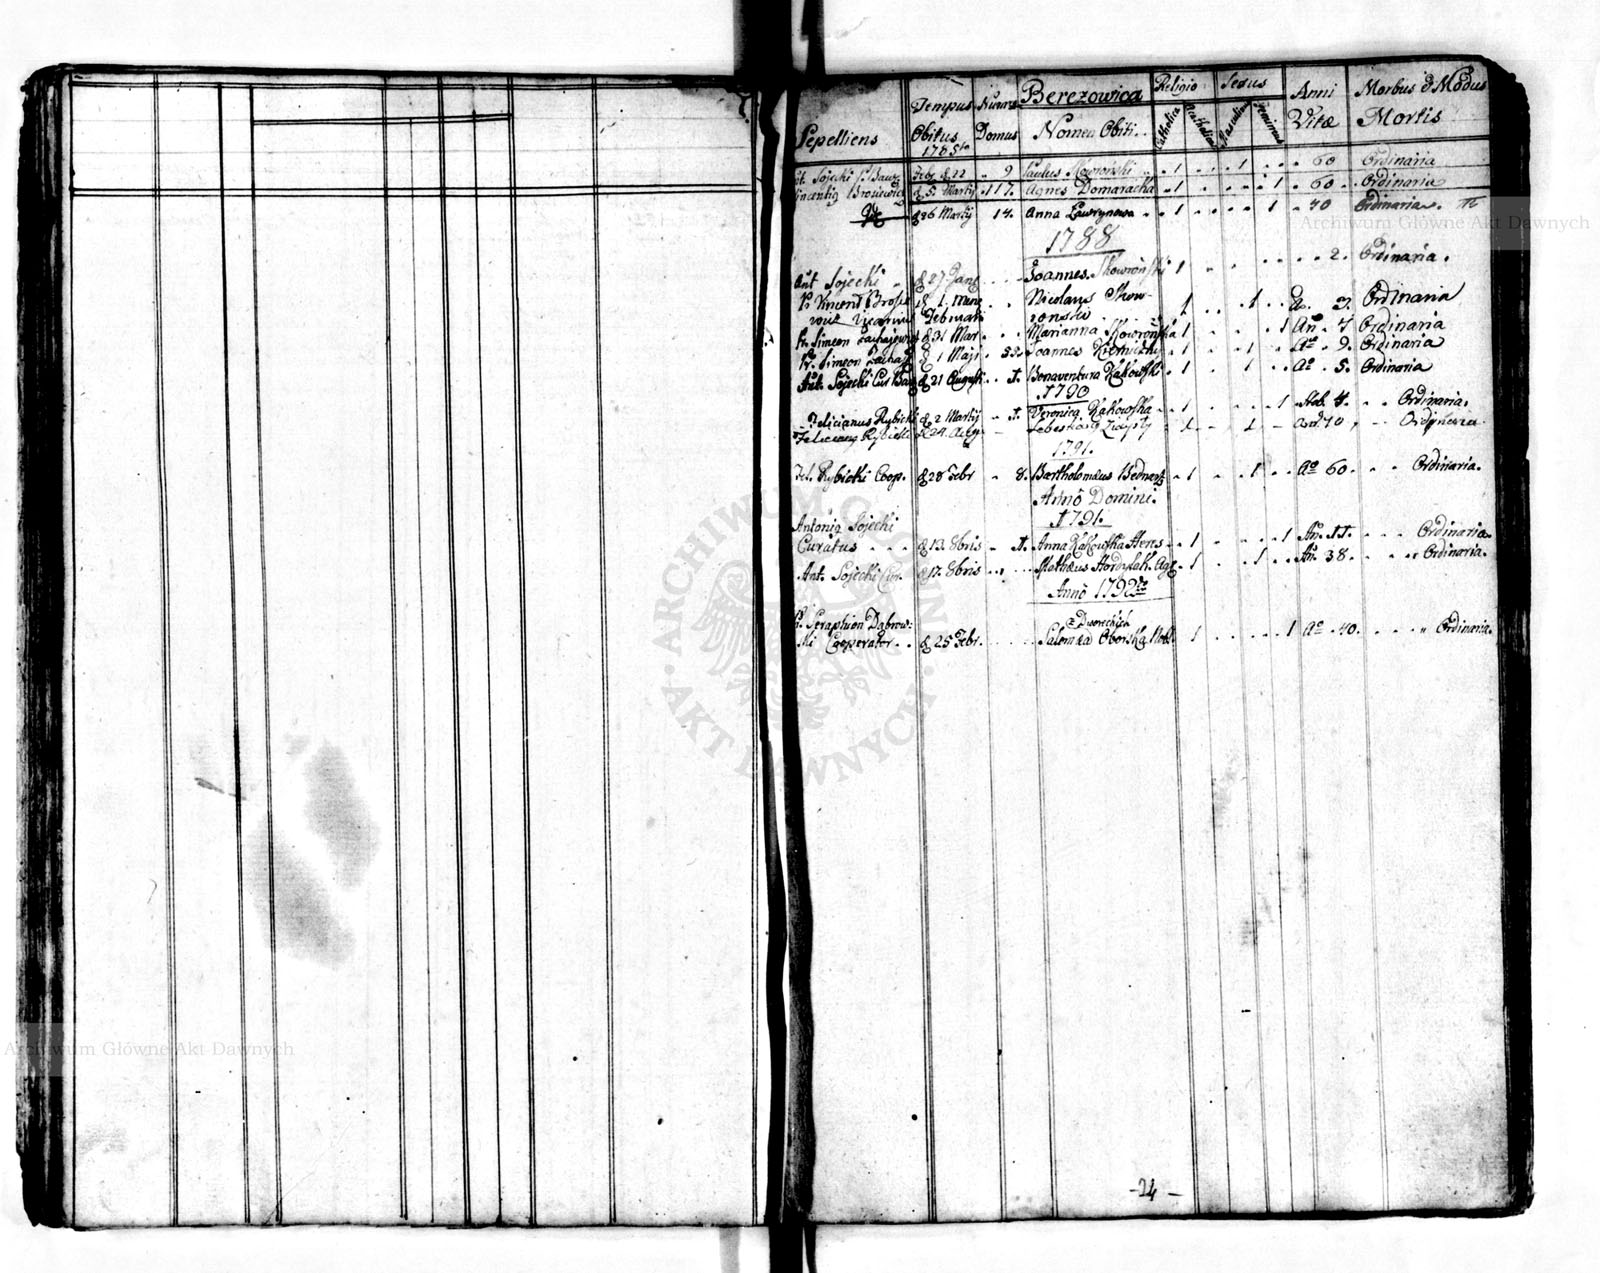 Sepelliens Tempus Obitus 1785to Numerus Domus Berezowica Nomen Obiti Religio Catholica Sexus Masculinus Femininus Anni Vitæ Morbus & Modus Mortis
Ant. Sojecki Febr d 22 9 Paulus Skowroński 1 1 60 Ordinaria
d 5 Martij 117. Agnes Domaracka 1 1 60 Ordinaria
d 26 Martij 14. Anna Ławrynowa 1 1 70 Ordinaria.
1788
Ant Sojecki d 27 Jan Joannes. Skowroński 1 2. Ordinaria.
Pr Vincent d 1. Mens Nicolaus Skow- 1 1 3. Ordinaria
Vicarius Februarii roński
Pr. Simeon d 31 Mar. Marianna Skowrońska 1 1 An. 7 Ordinaria
Pr. Simeon d 1 Maji 55. Joannes 1 1 Ao. 9. Ordinaria
Ant. Sojecki Cur d 21 Augusti 1. Bonaventura Kąkowski 1 1 Ao. 5. Ordinaria
1790
Felicianus Rybicki d 2 Martij 1. Veronica Kąkowska 1 1 4. Ordinaria.
Felicianus Rybicki d 24. Aug 1 1 70 Ordynaria
1791.
Fel. Rybicki Coop. d 28 Febr 8. Bartholomæus Bednarz 1 1 Ao 60. Ordinaria.
Anno Domini.
1791.
Antonius Sojecki
Curatus d 13. 8bris 1. Anna Kąkowska 1 1 An. 11. Ordinaria.
Ant. Sojecki Cur. d 17. 8bris Mathæus 1 1 An. 38. Ordinaria.
Anno 1792do
P. Seraphion Dąbrow: z Dworeckich
ski Cooperator. d 25 Febr. Salomea Oborska 1 1 Ao. 40. Ordinaria.
-24-
Archiwum Główne Akt Dawnych
ARCHIWUM GŁÓWNE AKT DAWNYCH
Archiwum Główne Akt Dawnych